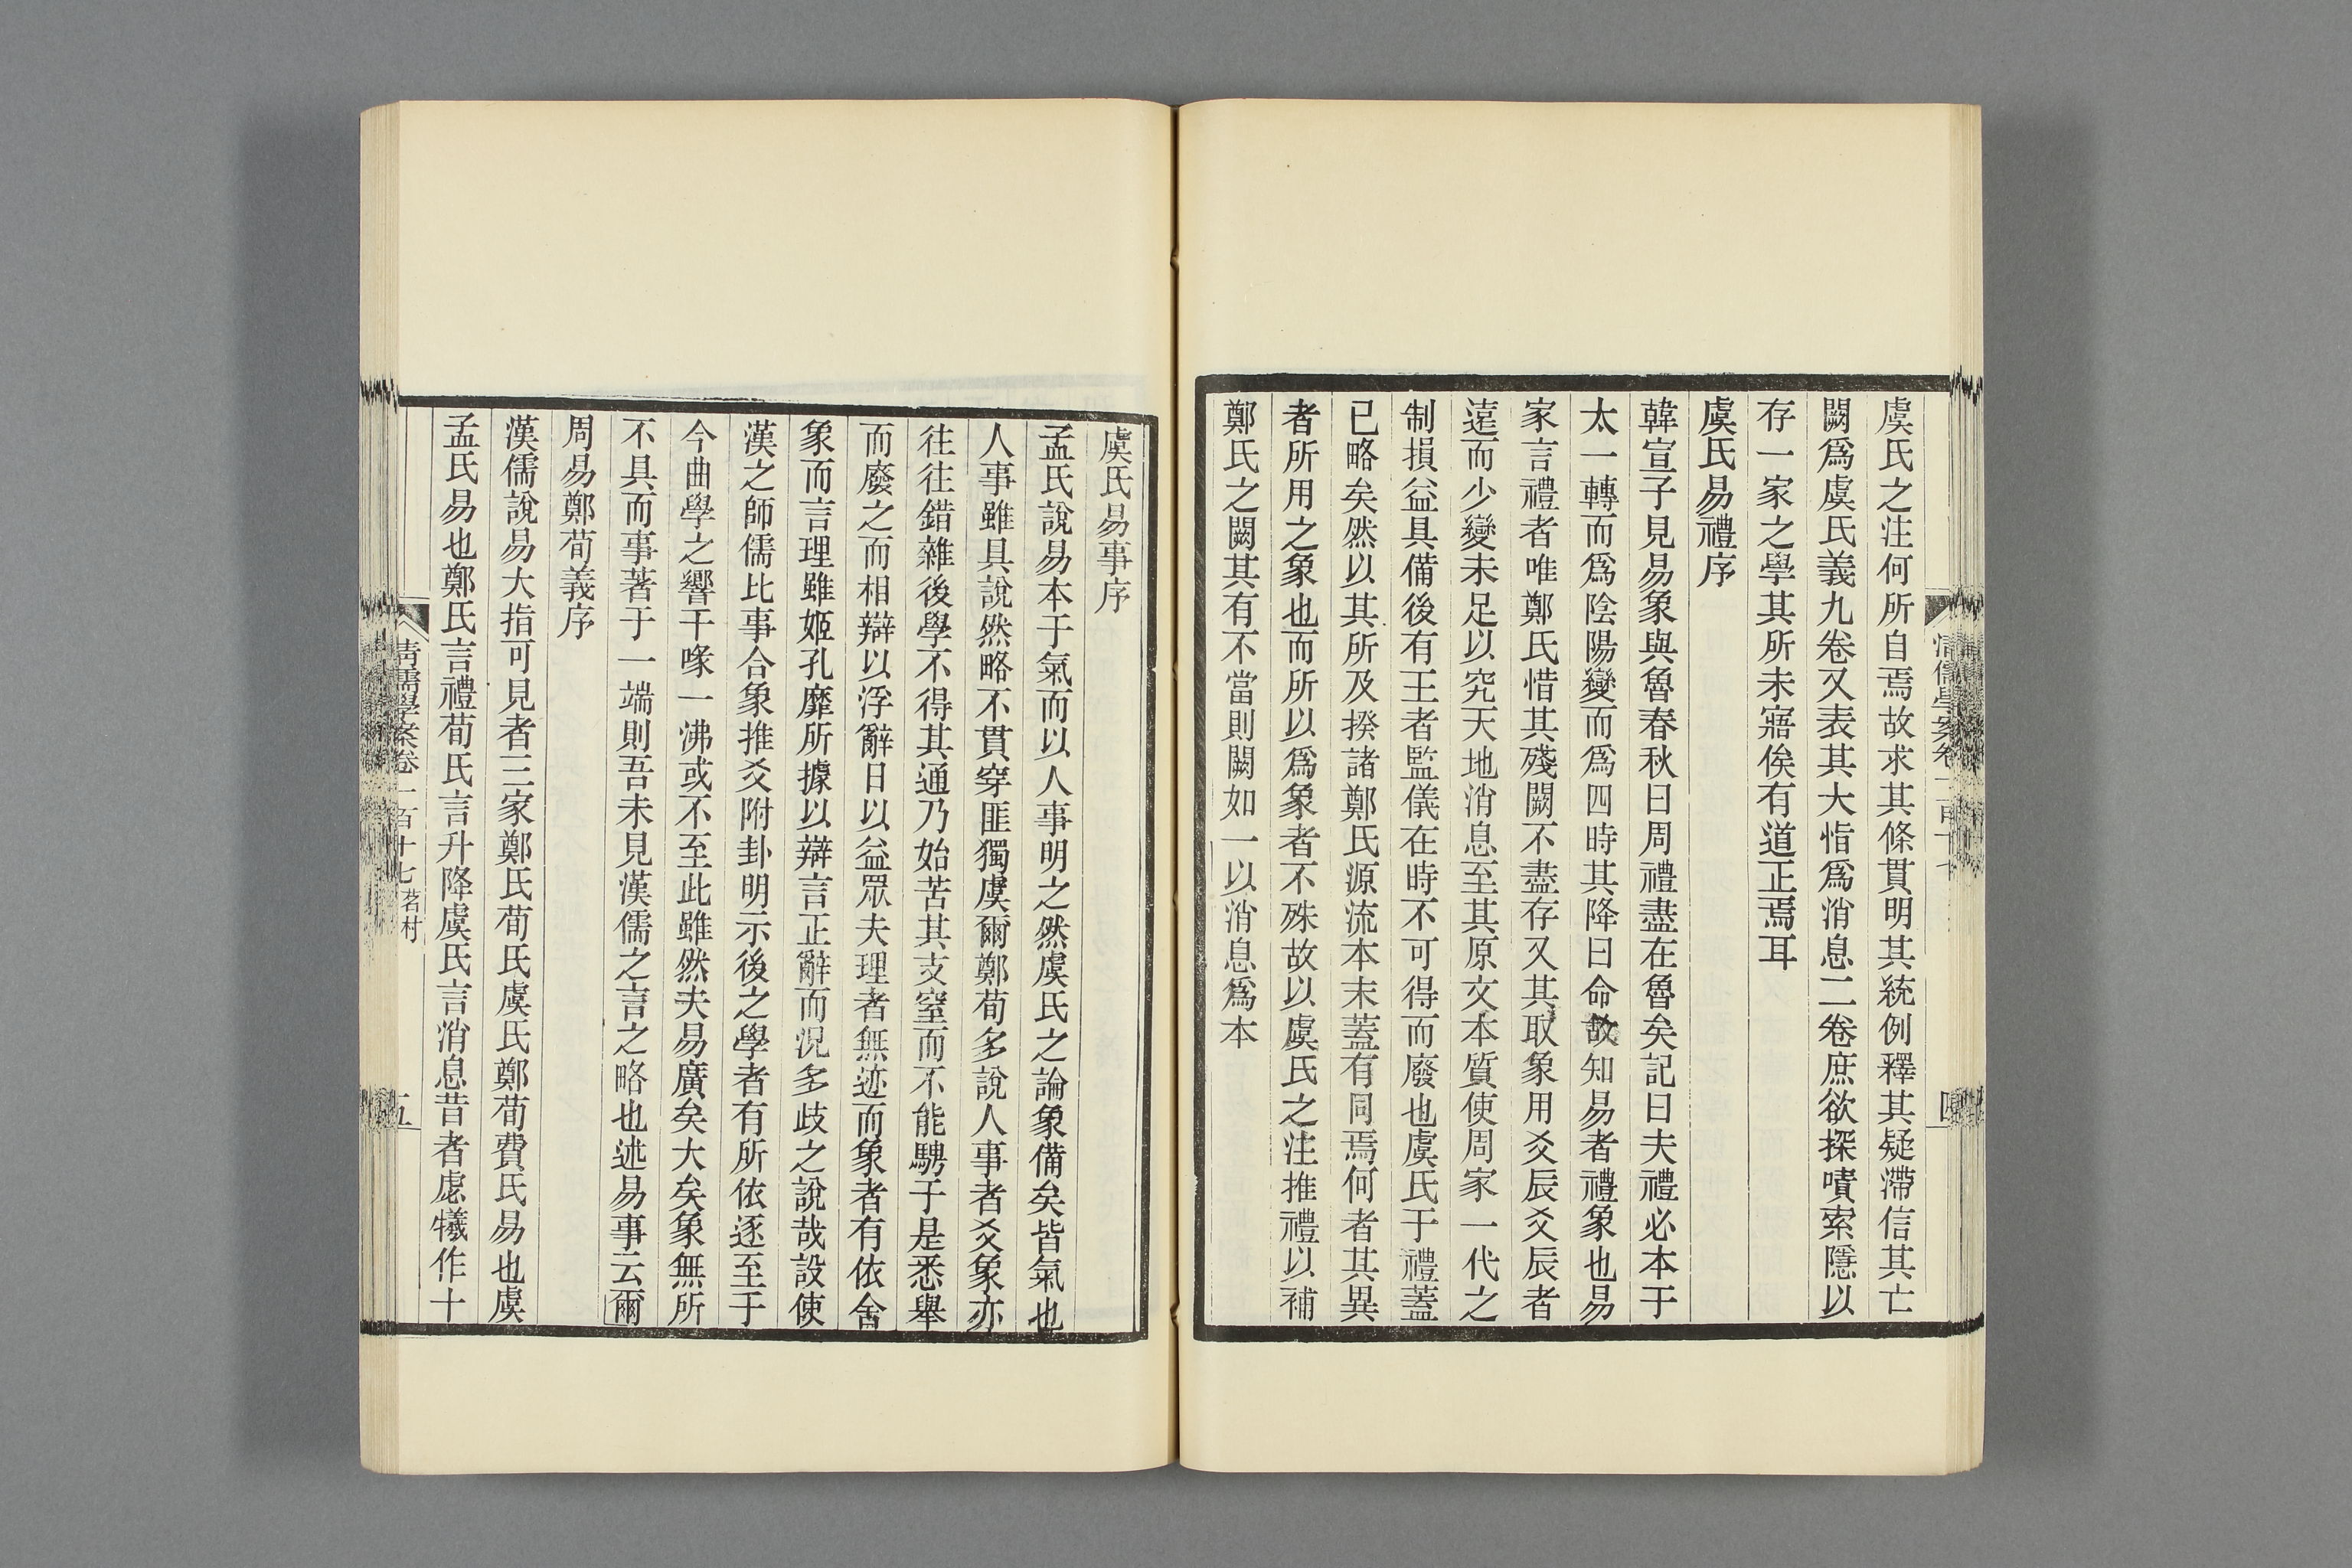 虞氏之注何所自焉故求其條貫明其統例釋其疑滯信其亡
闕爲虞氏義九卷又表其大恉爲消息二卷庶欲探嘖索隱以
存一家之學其所未寤俟有道正焉耳
虞氏易禮序
韓宣子見易象與魯春秋曰周禮盡在魯矣記曰夫禮必本于
太一轉而爲陰陽變而爲四時其降曰命故知易者禮象也易
家言禮者唯鄭氏惜其殘闕不盡存又其取象用爻辰爻辰者
遠而少變未足以究天地消息至其原文本質使周家一代之
制損益具備後有王者監儀在時不可得而廢也虞氏于禮蓋
已略矣然以其所及揆諸鄭氏源流本末蓋有同焉何者其異
者所用之象也而所以爲象者不殊故以虞氏之注推禮以補
鄭氏之闕其有不當則闕如一以消息爲本
清儒學案卷一百十七
四
虞氏易事序
孟氏說易本于氣而以人事明之然虞氏之論象備矣皆氣也
人事雖具說然略不貫穿匪獨虞爾鄭荀多說人事者爻象亦
往往錯雜後學不得其通乃始苦其支窒而不能騁于是悉舉
而廢之而相辯以浮辭日以益眾夫理者無迹而象者有依舍
象而言理雖姬孔靡所據以辯言正辭而況多歧之說哉設使
漢之師儒比事合象推爻附卦明示後之學者有所依逐至于
今曲學之響千喙一沸或不至此雖然夫易廣矣大矣象無所
不具而事著于一端則吾未見漢儒之言之略也述易事云爾
周易鄭荀義序
漢儒說易大指可見者三家鄭氏荀氏虞氏鄭荀費氏易也虞
孟氏易也鄭氏言禮荀氏言升降虞氏言消息昔者虙犧作十
清儒學案卷一百十七 茗村
五